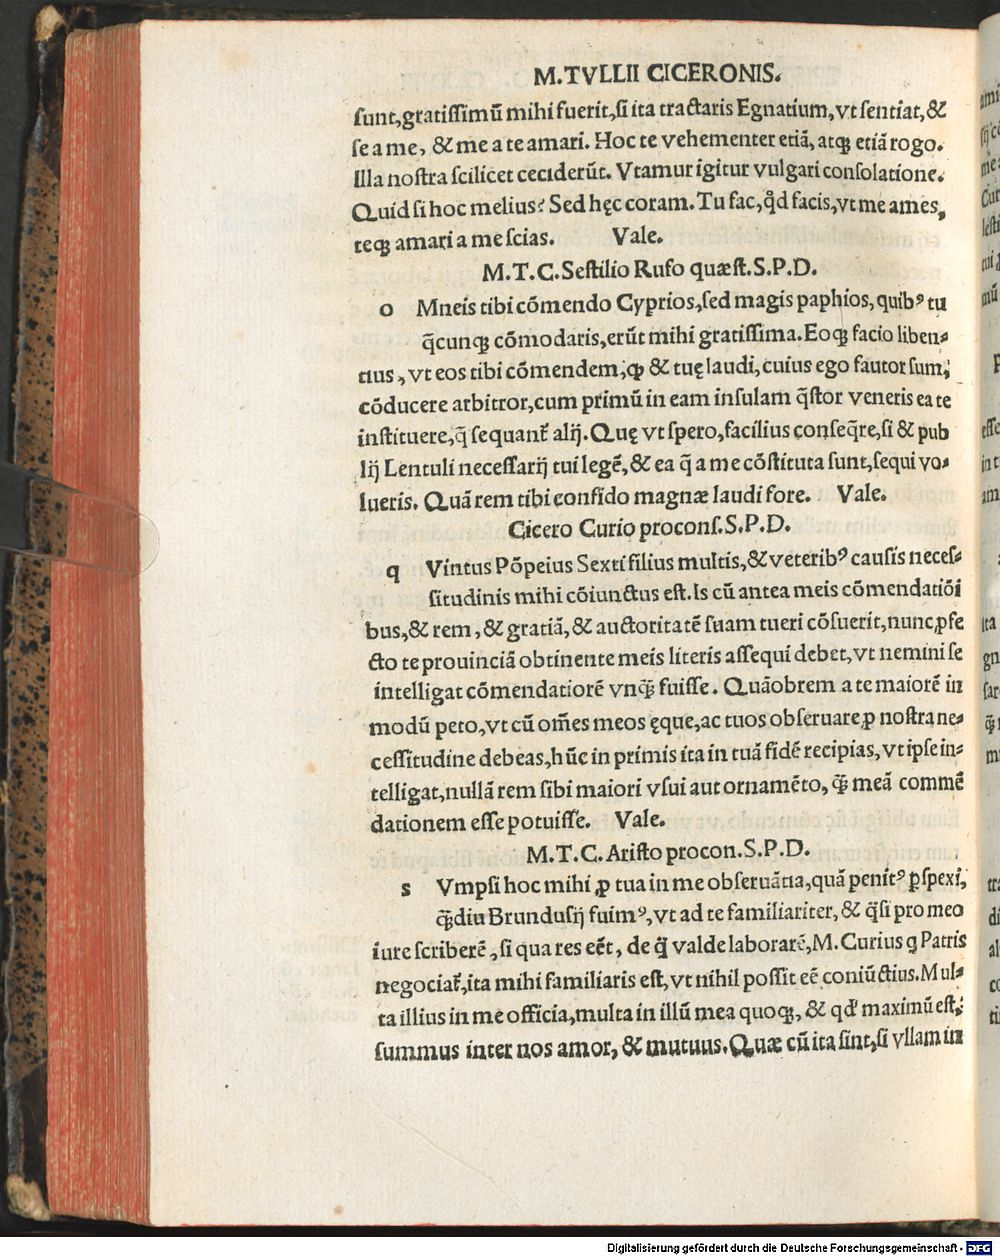 M.TVLLII CICERONIS.
sunt,gratissimū mihi fuerit,si ita tractaris Egnatium,vt sentiat,&
se a me, & me a te amari. Hoc te vehementer etiā, atqꝫ etiā rogo.
Illa nostra scilicet ceciderūt. Vtamur igitur vulgari consolatione.
Quid si hoc melius? Sed hęc coram. Tu fac,qd̓ facis,vt me ames,
teqꝫ amari a me scias. Vale.
M.T.C.Sestilio Rufo quæst.S.P.D.
o Mneis tibi cōmendo Cyprios,sed magis paphios,quibꝰ tu
q̄cunqꝫ cōmodaris,erūt mihi gratissima.Eoqꝫ facio liben-
tius,vt eos tibi cōmendem,ꝙ & tuę laudi,cuius ego fautor sum,
cōducere arbitror,cum primū in eam insulam q̄stor veneris ea te
instituere,q̄ sequant᷑ alij.Quę vt spero,facilius conseq̄re,si & pub
lij Lentuli necessarij tui legē,& ea q̄ a me cōstituta sunt,sequi vo-
lueris. Quā rem tibi confido magnæ laudi fore. Vale.
Cicero Curio procons.S.P.D.
q Vintus Pōpeius Sexti filius multis,&veteribꝰ causis neces-
situdinis mihi cōiunctus est.Is cū antea meis cōmendatiōi
bus,& rem,& gratiā,& auctoritatē suam tueri cōsuerit,nunc ꝓfe
cto te prouinciā obtinente meis literis assequi debet,vt nemini se
intelligat cōmendatiorē vnq̄ꝫ fuisse. Quāobrem a te maiorē in
modū peto,vt cū om̄es meos ęque,ac tuos obseruare ꝓ nostra ne-
cessitudine debeas,hūc in primis ita in tuā fidē recipias,vt ipse in-
telligat,nullā rem sibi maiori vsui aut ornamēto,q̄ꝫ meā commē
dationem esse potuisse. Vale.
M.T.C.Aristo procon.S.P.D.
s Vmpsi hoc mihi ꝓ tua in me obseruātia,quā penitꝰ ꝑspexi,
q̄ꝫdiu Brundusij fuimꝰ,vt ad te familiariter,& q̄si pro meo
iure scriberē,si qua res eēt, de q̄ valde laborarē,M.Curius q Patris
negociat᷑,ita mihi familiaris est,vt nihil possit eē coniūctius.Mul-
ta illius in me officia,multa in illū mea quoqꝫ,& qd̓ maximū est,
summus inter nos amor,& mutuus.Quæ cū ita sint,si vllam in
Digitalisierung gefördert durch die Deutsche Forschungsgemeinschaft - DFG